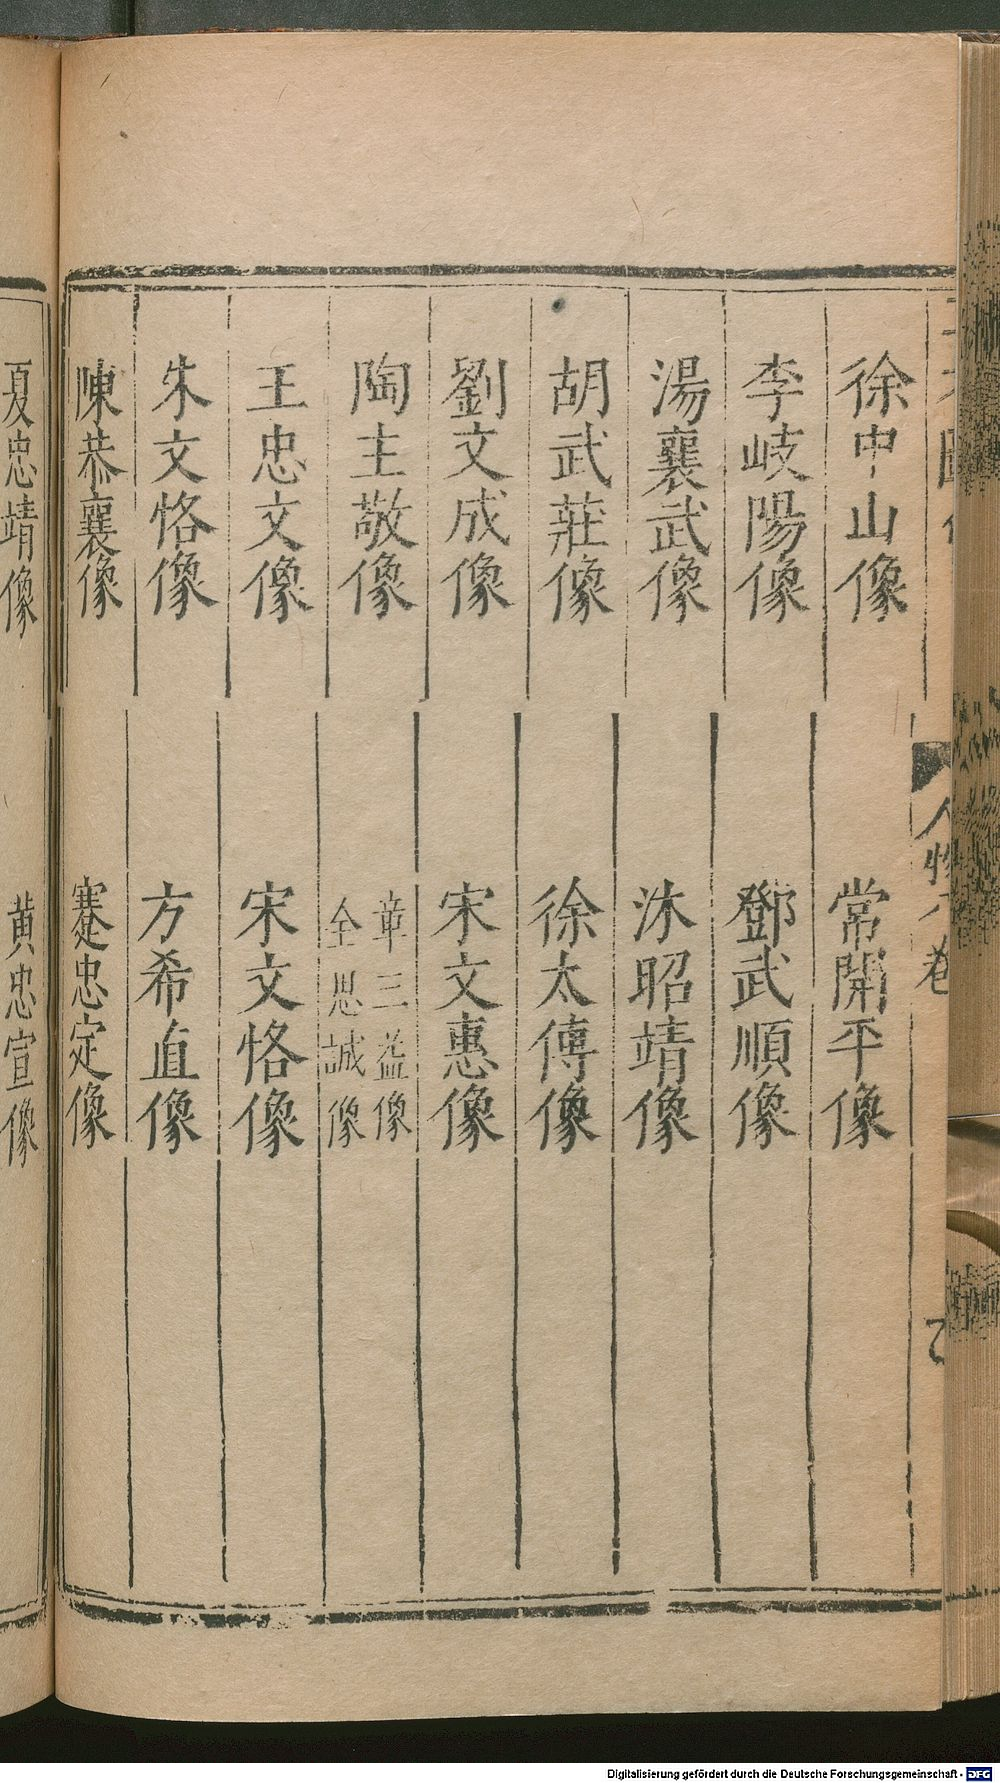 徐中山像
常開平像
李岐陽像
鄧武順像
湯襄武像
沐昭靖像
胡武莊像
徐太傅像
劉文成像
宋文惠像
陶主敬像
章三益像
全思誠像
王忠文像
宋文恪像
朱文恪像
方希直像
陳恭襄像
蹇忠定像
夏忠靖像
黃忠宣像
人物
卷
Digitalisierung gefördert durch die Deutsche Forschungsgemeinschaft - DFG